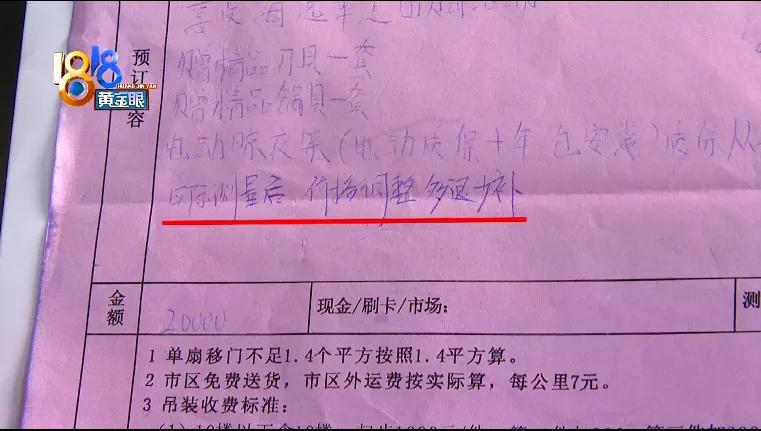 1818
HUANG JIN YAN
黄金眼
预订
容
赠精品刀具一套
赠精品锅具一套
电动晾衣架(电动质保十年 包安装)质保从
实际测量后、价格调整多退少补
金额
20000
现金/刷卡/市场:
测
1 单扇移门不足1.4个平方按照1.4平方算。
2 市区免费送货,市区外运费按实际算,每公里7元。
3 吊装收费标准: